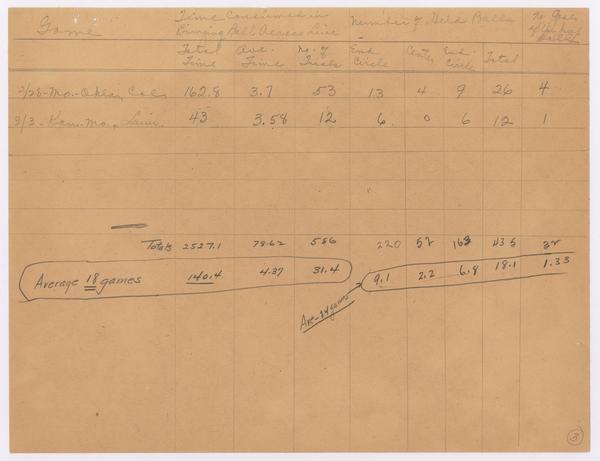 Game
Time Consumed in Bringing Ball Across Line
Number of Held Balls
No Goals after held
Total Time
Ave. Time
No. of Trials
End Circle
Center
End Circle
Total
2/28-Mo.-Okla., Col. 162.8 3.7 53 13 4 9 26 4
3/3-Kan.-Mo., 43 3.58 12 6 0 6 12 1
Totals 2527.1 78.62 566 220 52 163 435 32
Average 18 games 140.4 4.37 31.4 9.1 2.2 6.8 18.1 1.33
Ave-24 games
3